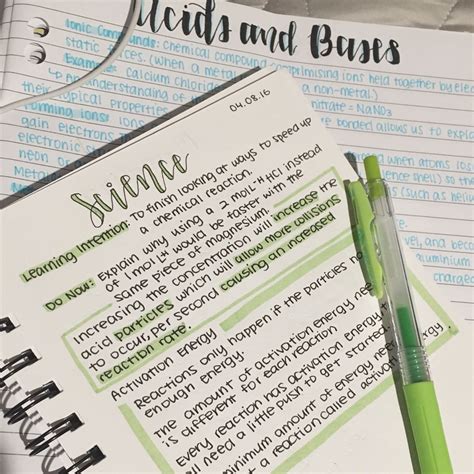 Acids and Bases
Ionic Compounds: Chemical compound comprimising ions held together by elec
static forces. (when a metal a non-metal)
Example: calcium chloride nitrate - NaNO₃
↳ An understanding of bonded allows us to expl
their typical properties
Forming ions:
gain electrons when atoms los
electronic s
neon or s (such as heliu
Metal
vel, and beco
aluminium
04.08.16
Science
Learning Intention: To finish looking at ways to speed up
a chemical reaction.
Do Now: Explain why using a 2 mol L⁻¹ HCl instead
of 1 mol L⁻¹ would be faster with the
same piece of magnesium.
Increasing the concentration will increase the
acid particles which will allow more collisions
to occur, per second causing an increased
reaction rate.
Activation Energy
Reactions only happen if the particles ha
enough energy.
The amount of activation energy nee
is different for each reaction
Every reaction has activation energy
need a little push to get started
minimum amount of energy nee
t a reaction called activat